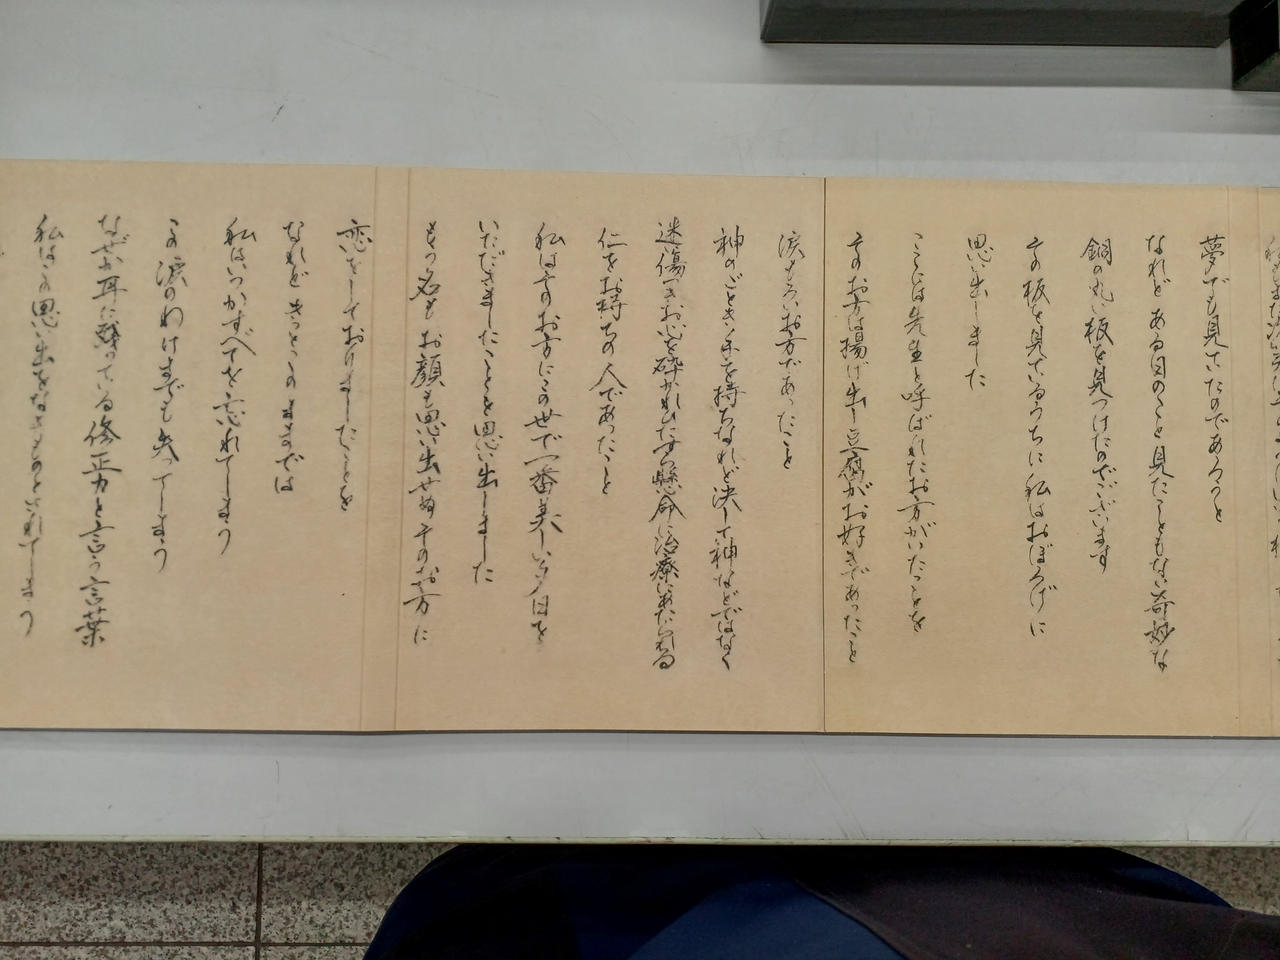 夢でも見ていたのであろうと
なれどある日のこと見たこともない奇妙な
銅の丸い板を見つけたのでございます
その板を見ているうちに私はおぼろげに
思い出しました
ここには先生と呼ばれたお方がいたことを
そのお方は揚げ出し豆腐がお好きであったこと
涙もろいお方であったこと
神のごとき手を持ちなれど決して神などではなく
迷い傷つきお心を砕かれひたすら懸命に治療にあたられる
仁をお持ちの人であったこと
私はそのお方にこの世で一番美しい夕日を
いただきましたことを思い出しました
もう名もお顔も思い出せぬそのお方に
恋をしておりましたことを
なれどきっとこのままでは
私はいつかすべてを忘れてしまう
この涙のわけまでも失ってしまう
なぜか耳に残っている修正力と言う言葉
私はこの思い出をなきものとされてしまう